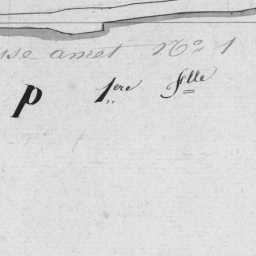 sse amet No. 1
p 1ere flle